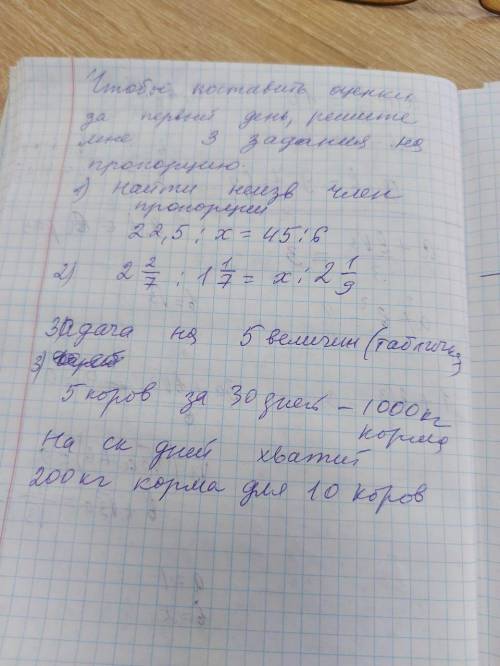 Чтобы поставить оценки
за первый день, решите
мне 3 задания на
пропорцию.
1) Найти неизв член
пропорции
22,5 : x = 45 : 6
2) 2 2/7 : 1 1/7 = x : 2 1/9
Задача на 5 величин (табличка)
3)
5 коров за 30 дней – 1000 кг
корма
На ск дней хватит
200 кг корма для 10 коров